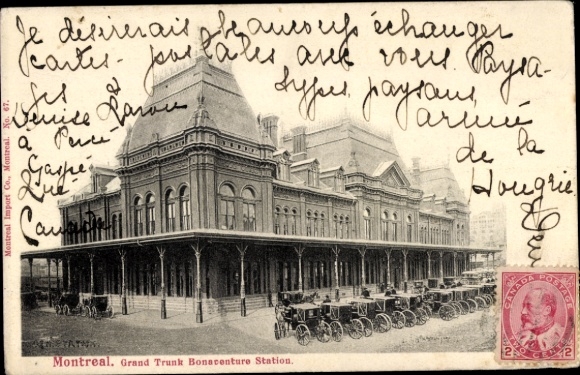 Je désirerais beaucoup échanger
cartes-postales avec vous Paysa-
ges types, paysans,
armée
de la
Hongrie
Denise
à Percé
Gaspé
Que
Canada
Montreal Import Co., Montreal. No. 67.
Montreal. Grand Trunk Bonaventure Station.
CANADA POSTAGE
2 TWO CENTS 2